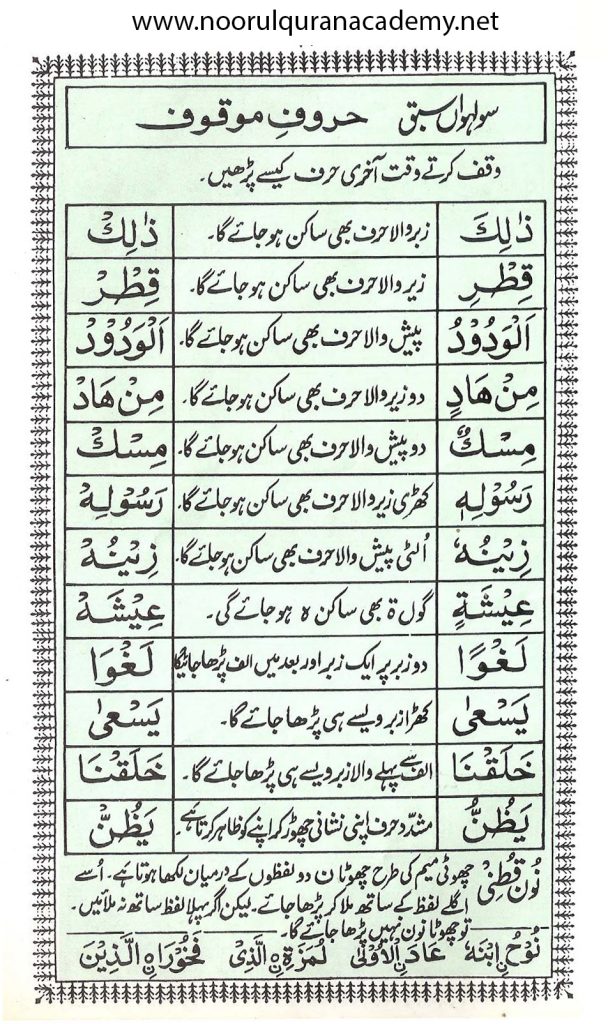 www.noorulquranacademy.net
سولہواں سبق حروفِ موقوف
وقف کرتے وقت آخری حرف کیسے پڑھیں۔
ذٰلِكَ زبر والا حرف بھی ساکن ہو جائے گا۔ ذٰلِكْ
قِطْرِ زیر والا حرف بھی ساکن ہو جائے گا۔ قِطْرْ
اَلْوَدُوْدُ پیش والا حرف بھی ساکن ہو جائے گا۔ اَلْوَدُوْدْ
مِنْ هَادٍ دو زیر والا حرف بھی ساکن ہو جائے گا۔ مِنْ هَادْ
مِسْكٌ دو پیش والا حرف بھی ساکن ہو جائے گا۔ مِسْكْ
رَسُوْلِهٖ کھڑی زیر والا حرف بھی ساکن ہو جائے گا۔ رَسُوْلِهْ
زِيْنُهٗ اُلٹی پیش والا حرف بھی ساکن ہو جائے گا۔ زِيْنُهْ
عِيْشَةٍ گول ة بھی ساکن ہ ہو جائے گی۔ عِيْشَهْ
لَغْوًا دو زبر پر ایک زبر اور بعد میں الف پڑھا جائیگا لَغْوَا
يَسْعٰى کھڑا زبر ویسے ہی پڑھا جائے گا۔ يَسْعٰى
خَلَقْنَا الف سے پہلے والا زبر ویسے ہی پڑھا جائے گا۔ خَلَقْنَا
يَظُنُّ مشدّد حرف اپنی نشانی چھوڑ کر اپنے کو ظاہر کرتا ہے۔ يَظُنّْ
نُون قُطْنِی چھوٹی میم کی طرح چھوٹا ن دو لفظوں کے درمیان لکھا ہوتا ہے۔ اُسے
اگلے لفظ کے ساتھ ملا کر پڑھا جائے۔ لیکن اگر پہلا لفظ ساتھ نہ ملائیں۔
تو چھوٹا نون نہیں پڑھا جائے گا۔
نُوْحُ نِ ابْنَهٗ عَادَ نِ الْاُوْلٰى لُمَزَةِ نِ الَّذِىْ فَخُوْرَا نِ الَّذِيْنَ